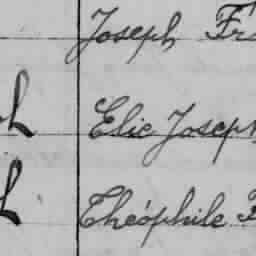 Joseph
Elie Joseph
Théophile